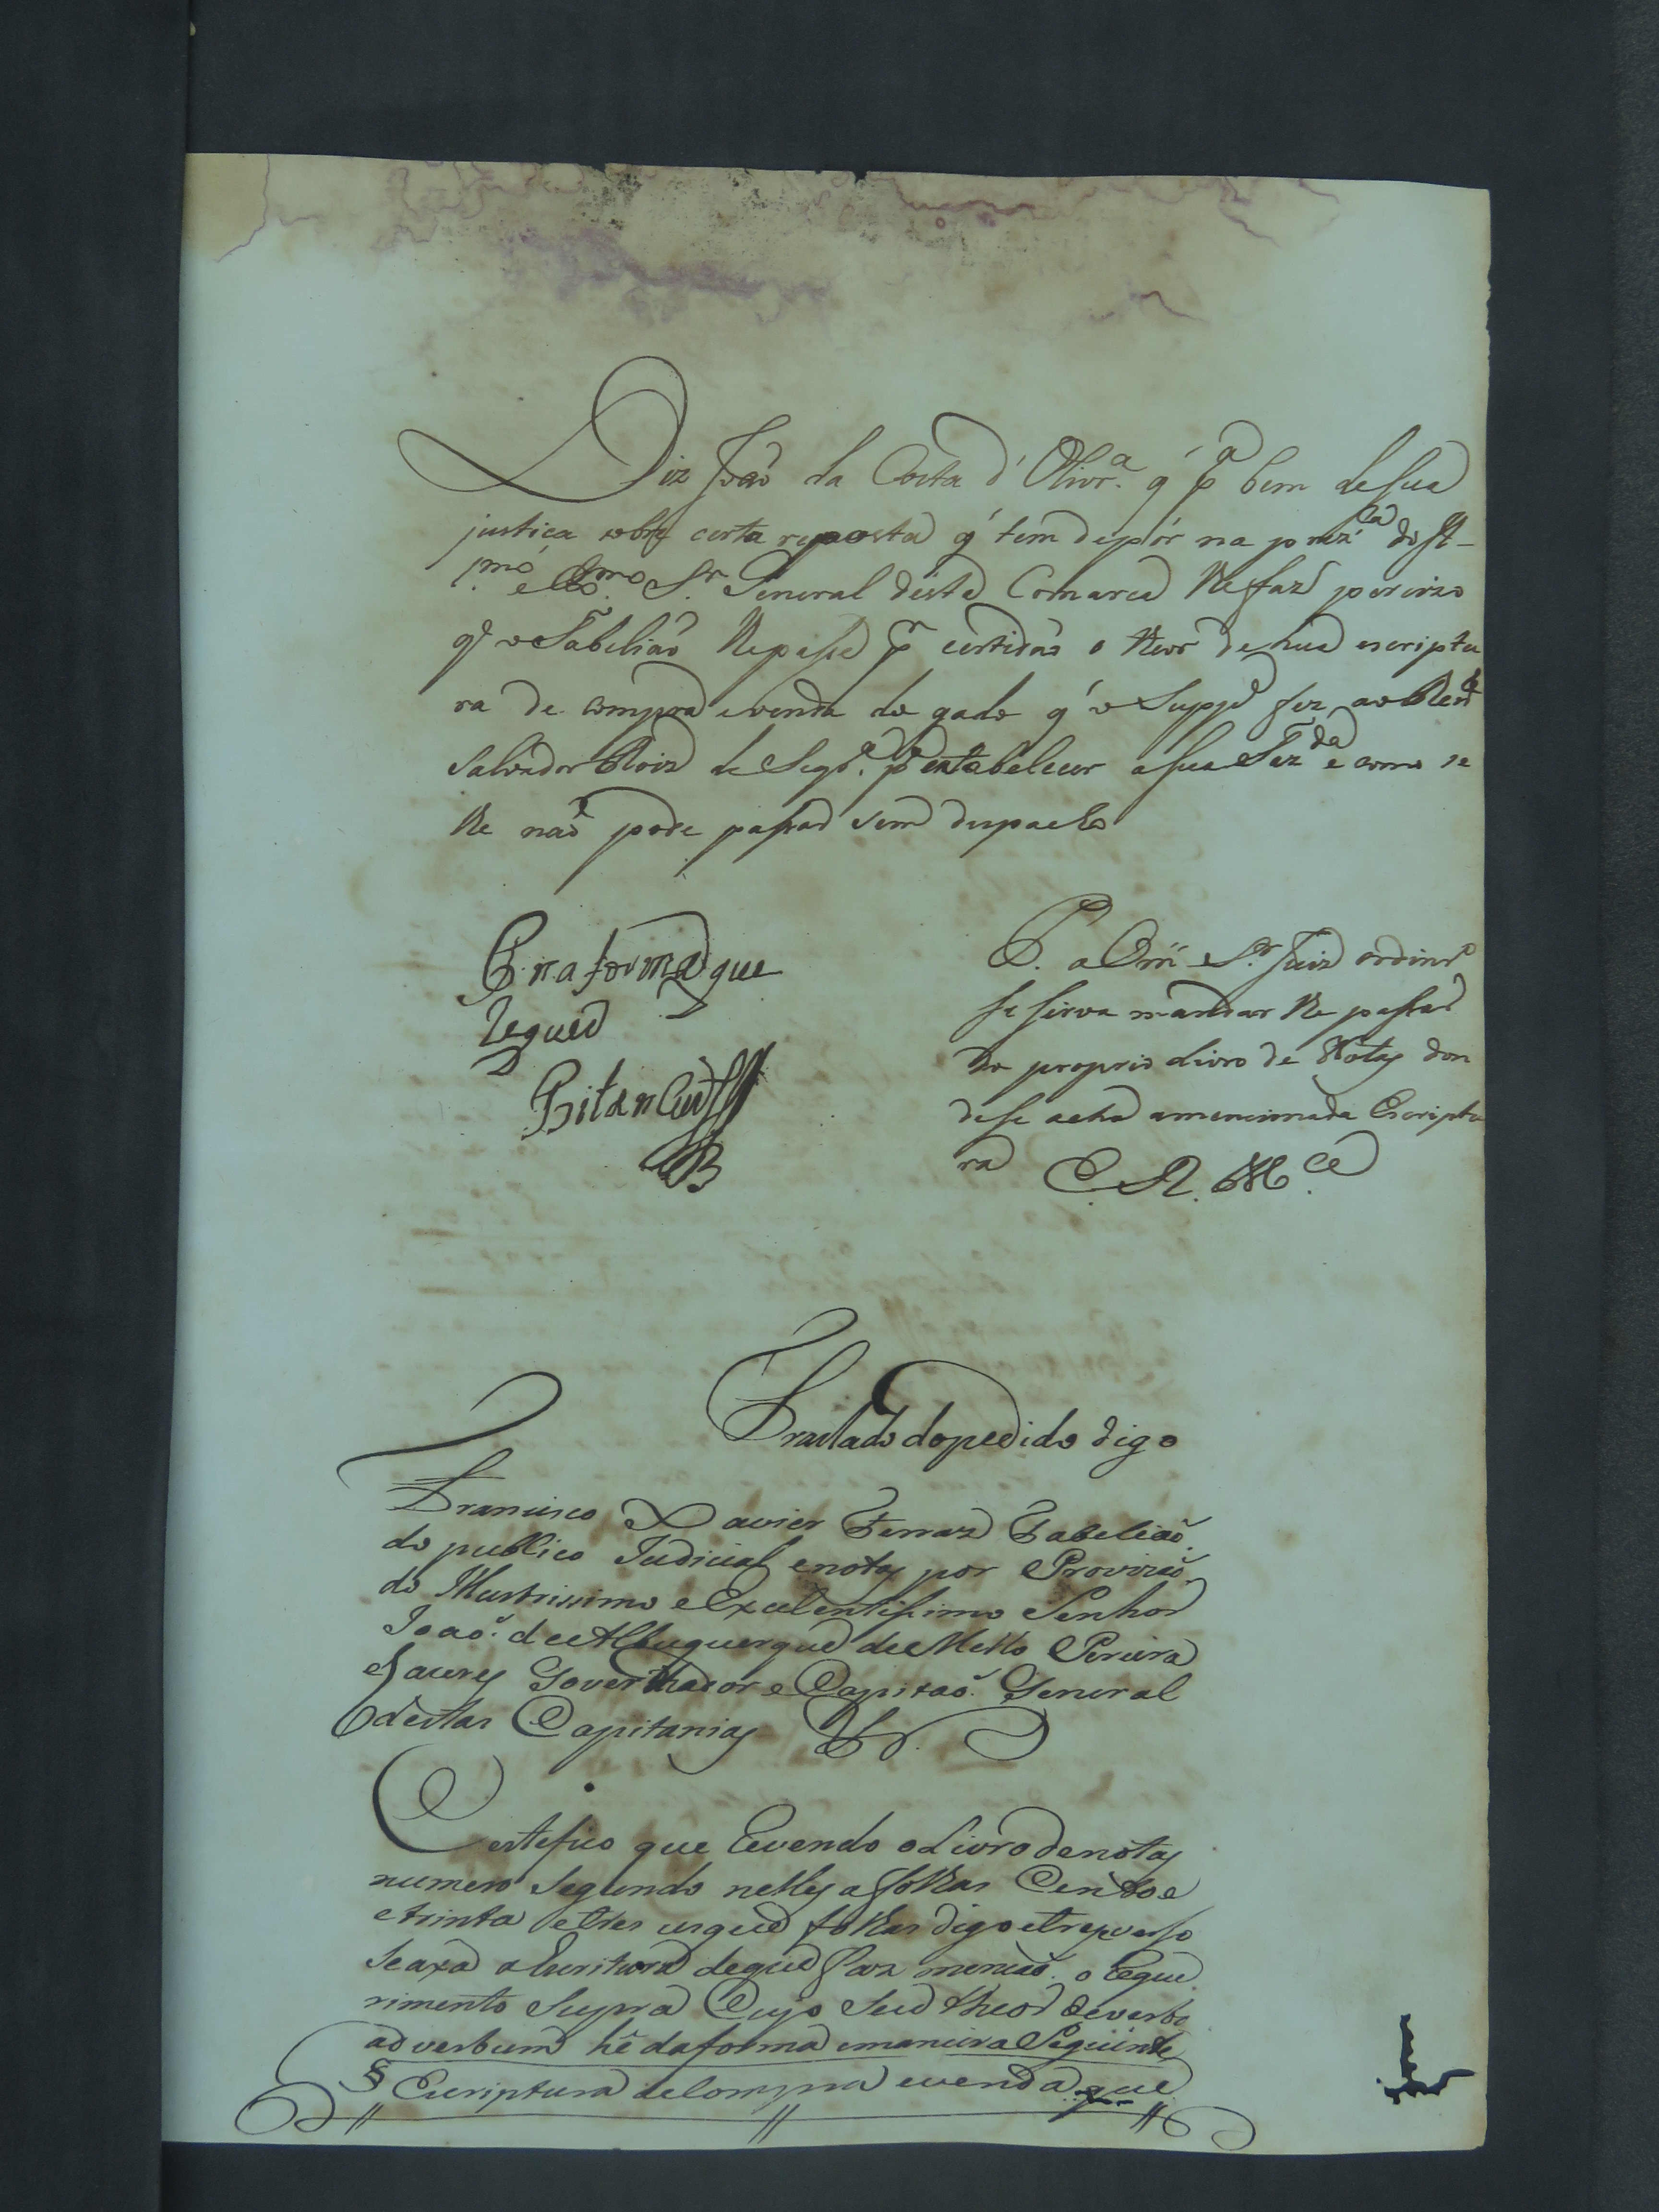 Diz João da Costa d'Olivr.ª q' pª bem de sua
justiça sobre certa reposta q' tem de pôr na prez.ça do Il-
l.mo e Ex.mo S.r General désta Comarca lhe faz perciso
q' o Tabelião lhe passe pr certidão o theor de hua escriptu
ra de compra e venda de gado q' o Supp.e fez ao
Salvador Roiz de Siqr.ª pª estabelecer a sua Faz.da e como se
lhe não póde passar sem despacho
P. na forma que
Requer
Bitancurt
P. a Vm.ce S.r Juiz ordinr.º
se sirva mandar lhe passar
do proprio Livro de Notas don
de se acha a mencionada Escriptu
ra
E. R. M.ce
Traslado do pedido digo
Francisco Xavier Ferraz Tabelião
do publico Judicial e notas por Provizão
do Illustrissimo e Excelentissimo Senhor
João de Albuquerque de Mello Pereira
e Caceres Governador e Capitão General
destas Capitanias
Certefico que Revendo o Livro de notas
numero Segundo nelles a folhas Cento e
e trinta e tres usque folhas digo e tres verso
Se axa a Escritura de que faz menção o Reque
rimento Supra Cujo Seu theor de verbo
ad verbum hé da forma e maneira Seguinte
§ Escriptura de Compra e venda que